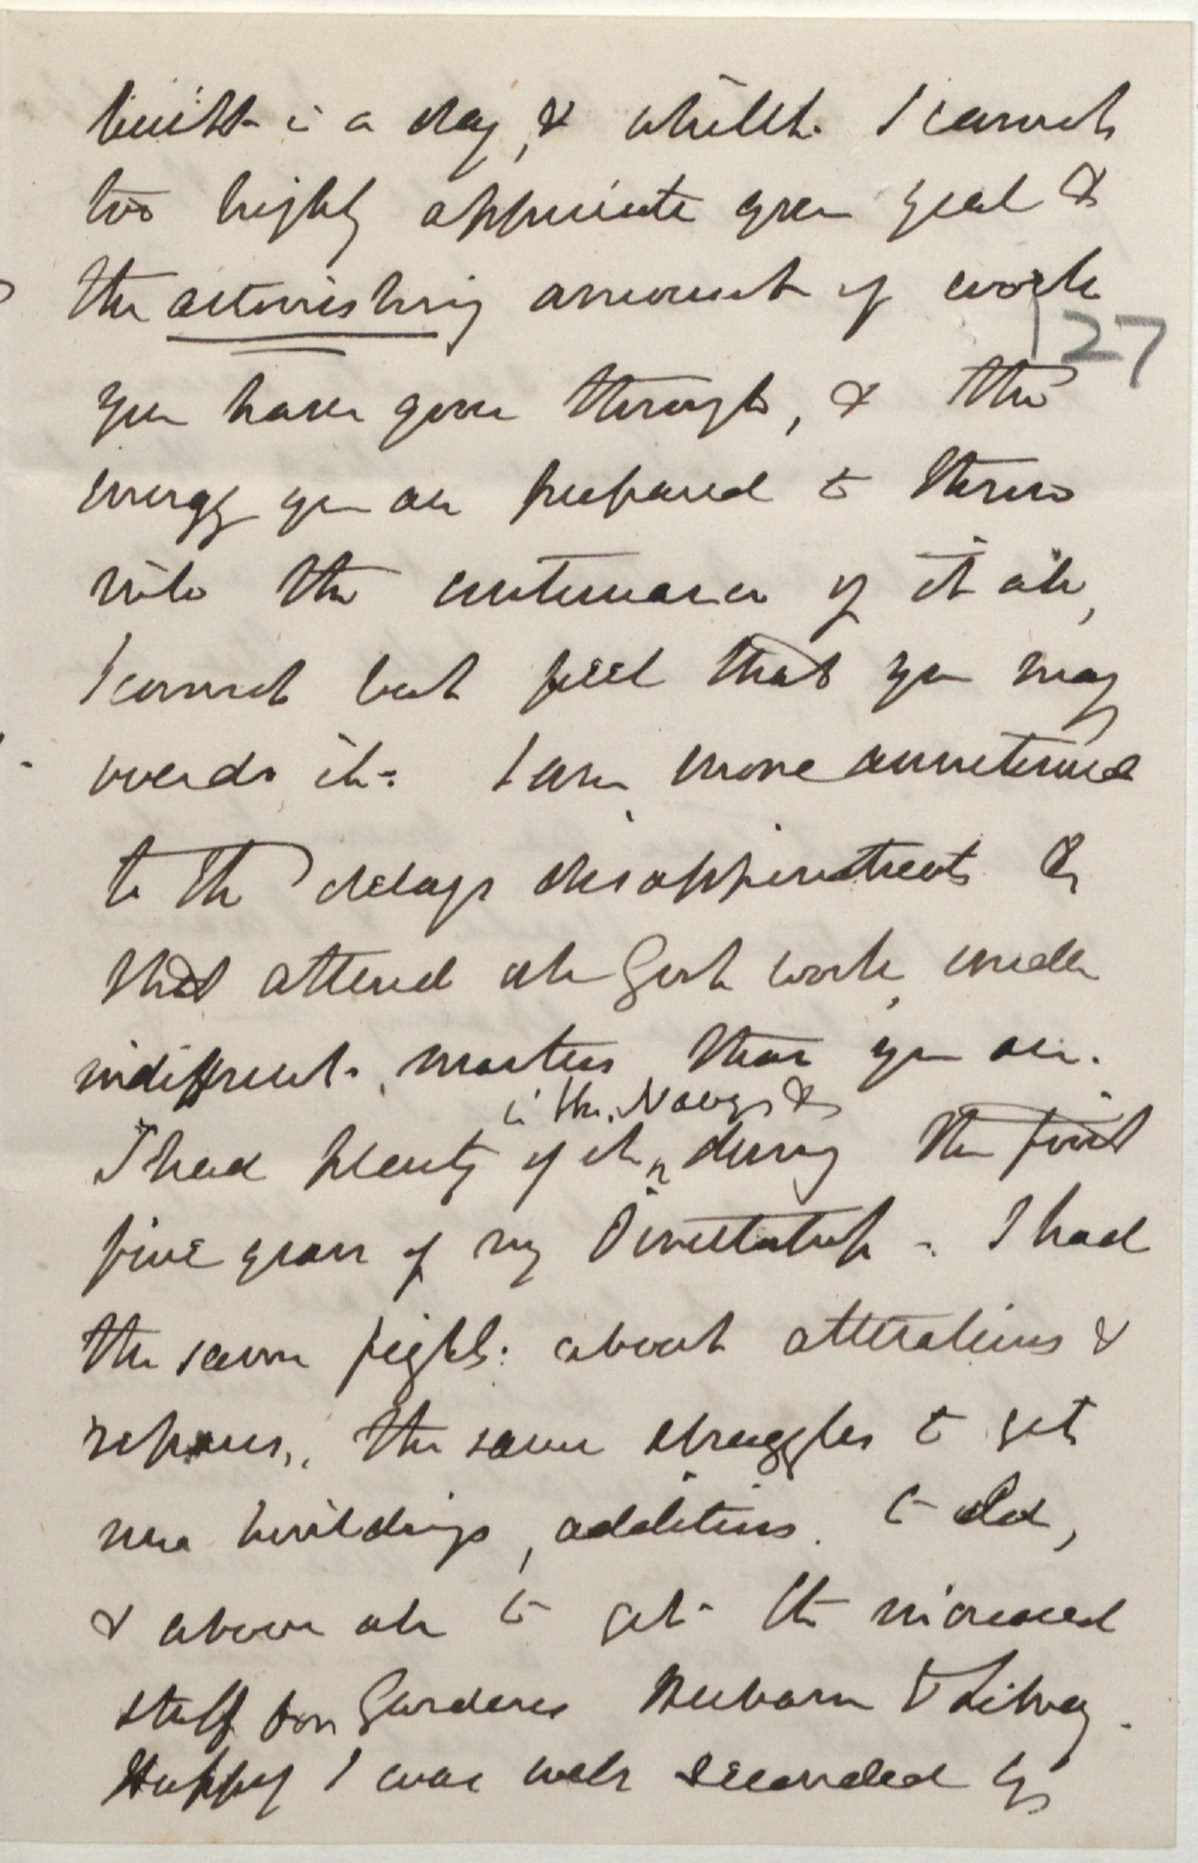 built in a day, & whilst I cannot
too highly appreciate your zeal &
the astonishing amount of work
127
you have gone through, & the
energy you are prepared to throw
into the continuance of it all,
I cannot but feel that you may
overdo it. I am more accustomed
to the delays disappointments &
that attend all Govt work under
indifferent masters than you are.
in the Navy &
I had plenty of it ^ during the first
five years of my Directorship. I had
the same fight about alterations &
repairs, the same struggles to get
new buildings, additions to old,
& above all to get the increased
staff for Gardens Herbarm & Liby.
Happy I was well seconded by